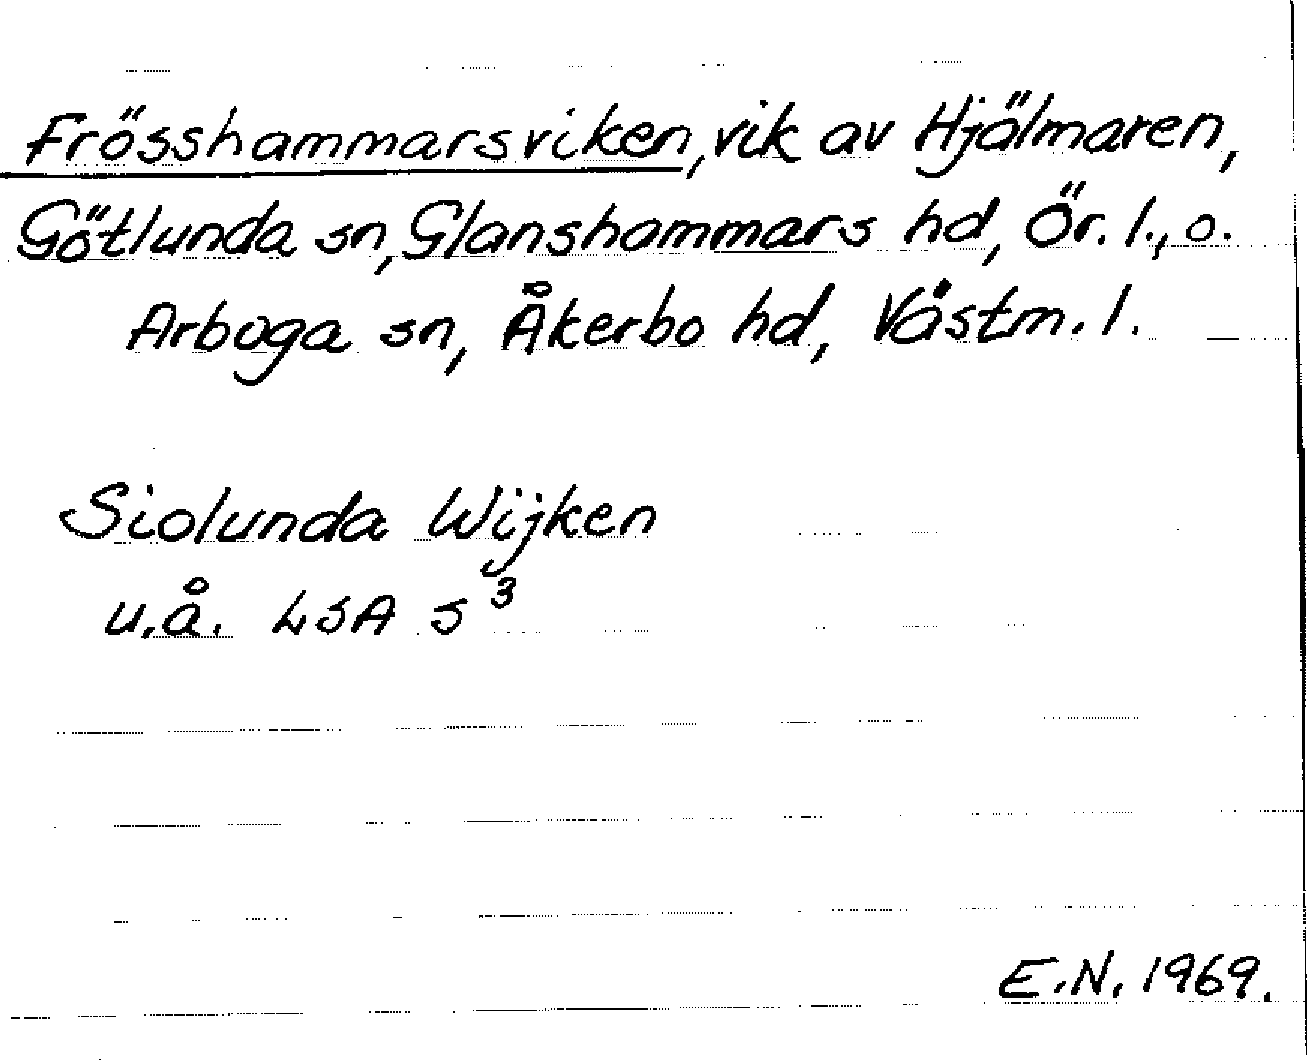 Frösshammarsviken, vik av Hjälmaren,
Götlunda sn, Glanshammars hd, Ör. l., o.
Arboga sn, Åkerbo hd, Västm. l.
Siolunda Wijken
u.å. LSA S 3
E.N. 1969.